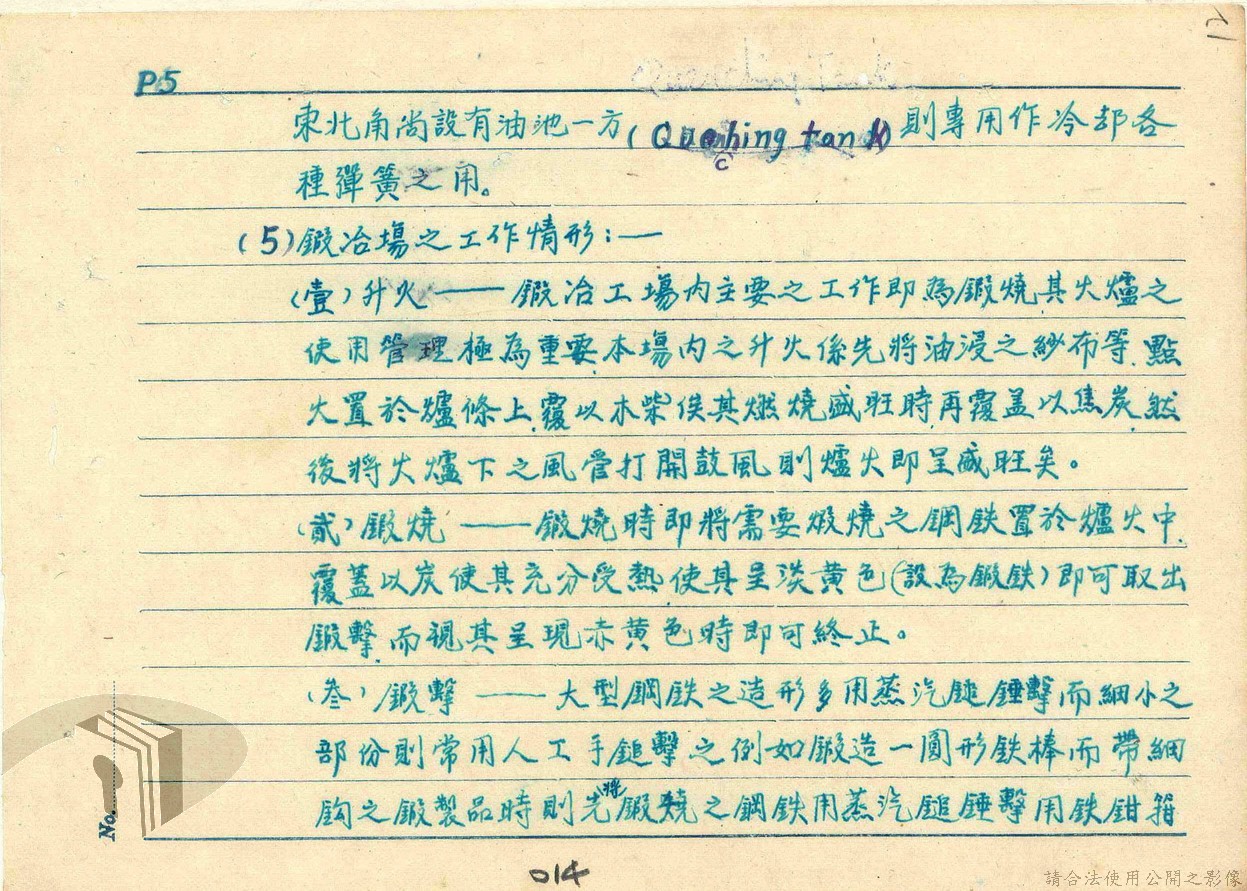 P.5
東北角尚設有油池一方(Quenching tank)則專用作冷却各
種彈簧之用。
(5)鍛冶場之工作情形:—
(壹)升火——鍛冶工場內主要之工作即為鍛燒其火爐之
使用管理極為重要,本場內之升火係先將油浸之紗布等,點
火置於爐條上,覆以木柴俟其燃燒盛旺時,再覆蓋以焦炭,然
後將火爐下之風管打開鼓風則爐火即呈盛旺矣。
(貳)鍛燒——鍛燒時即將需要煅燒之鋼鉄置於爐火中,
覆蓋以炭使其充分受熱,使其呈淡黄色(設為鍛鉄)即可取出
鍛擊,而視其呈現赤黄色時即可終止。
(叁)鍛擊——大型鋼鉄之造形多用蒸汽鎚錘擊而細小之
部份則常用人工手鎚擊之例如鍛造一圓形鉄棒而帶細
鈎之鍛製品時則先將鍛燒之鋼鉄用蒸汽鎚錘擊用鉄鉗箝
No.
014
請合法使用公開之影像